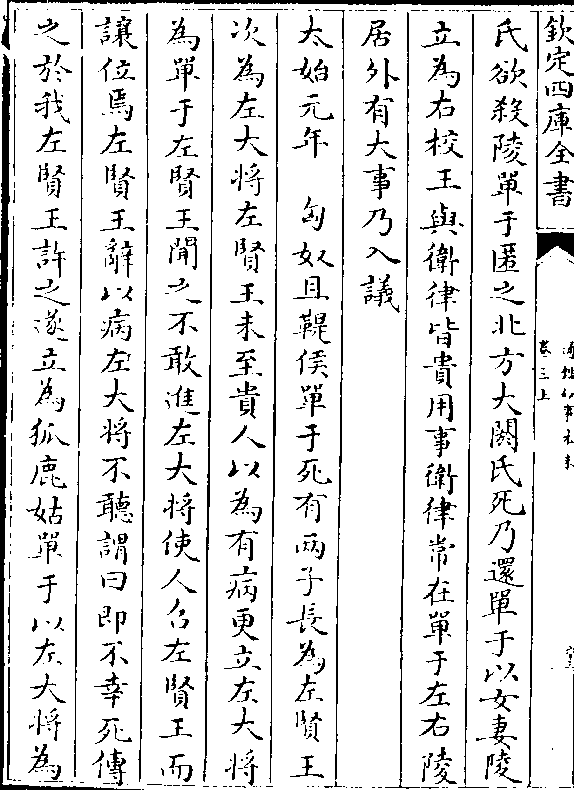 欽定四庫全書
卷三上
氏欲殺陵單于匿之北方大閼氏死乃還單于以女妻陵
立為右校王與衛律皆貴用事衛律常在單于左右陵
居外有大事乃入議
太始元年　匈奴且鞮侯單于死有兩子長為左賢王
次為左大將左賢王未至貴人以為有病更立左大將
為單于左賢王聞之不敢進左大將使人召左賢王而
讓位焉左賢王辭以病左大將不聽謂曰即不幸死傳
之於我左賢王許之遂立為狐鹿姑單于以左大將為